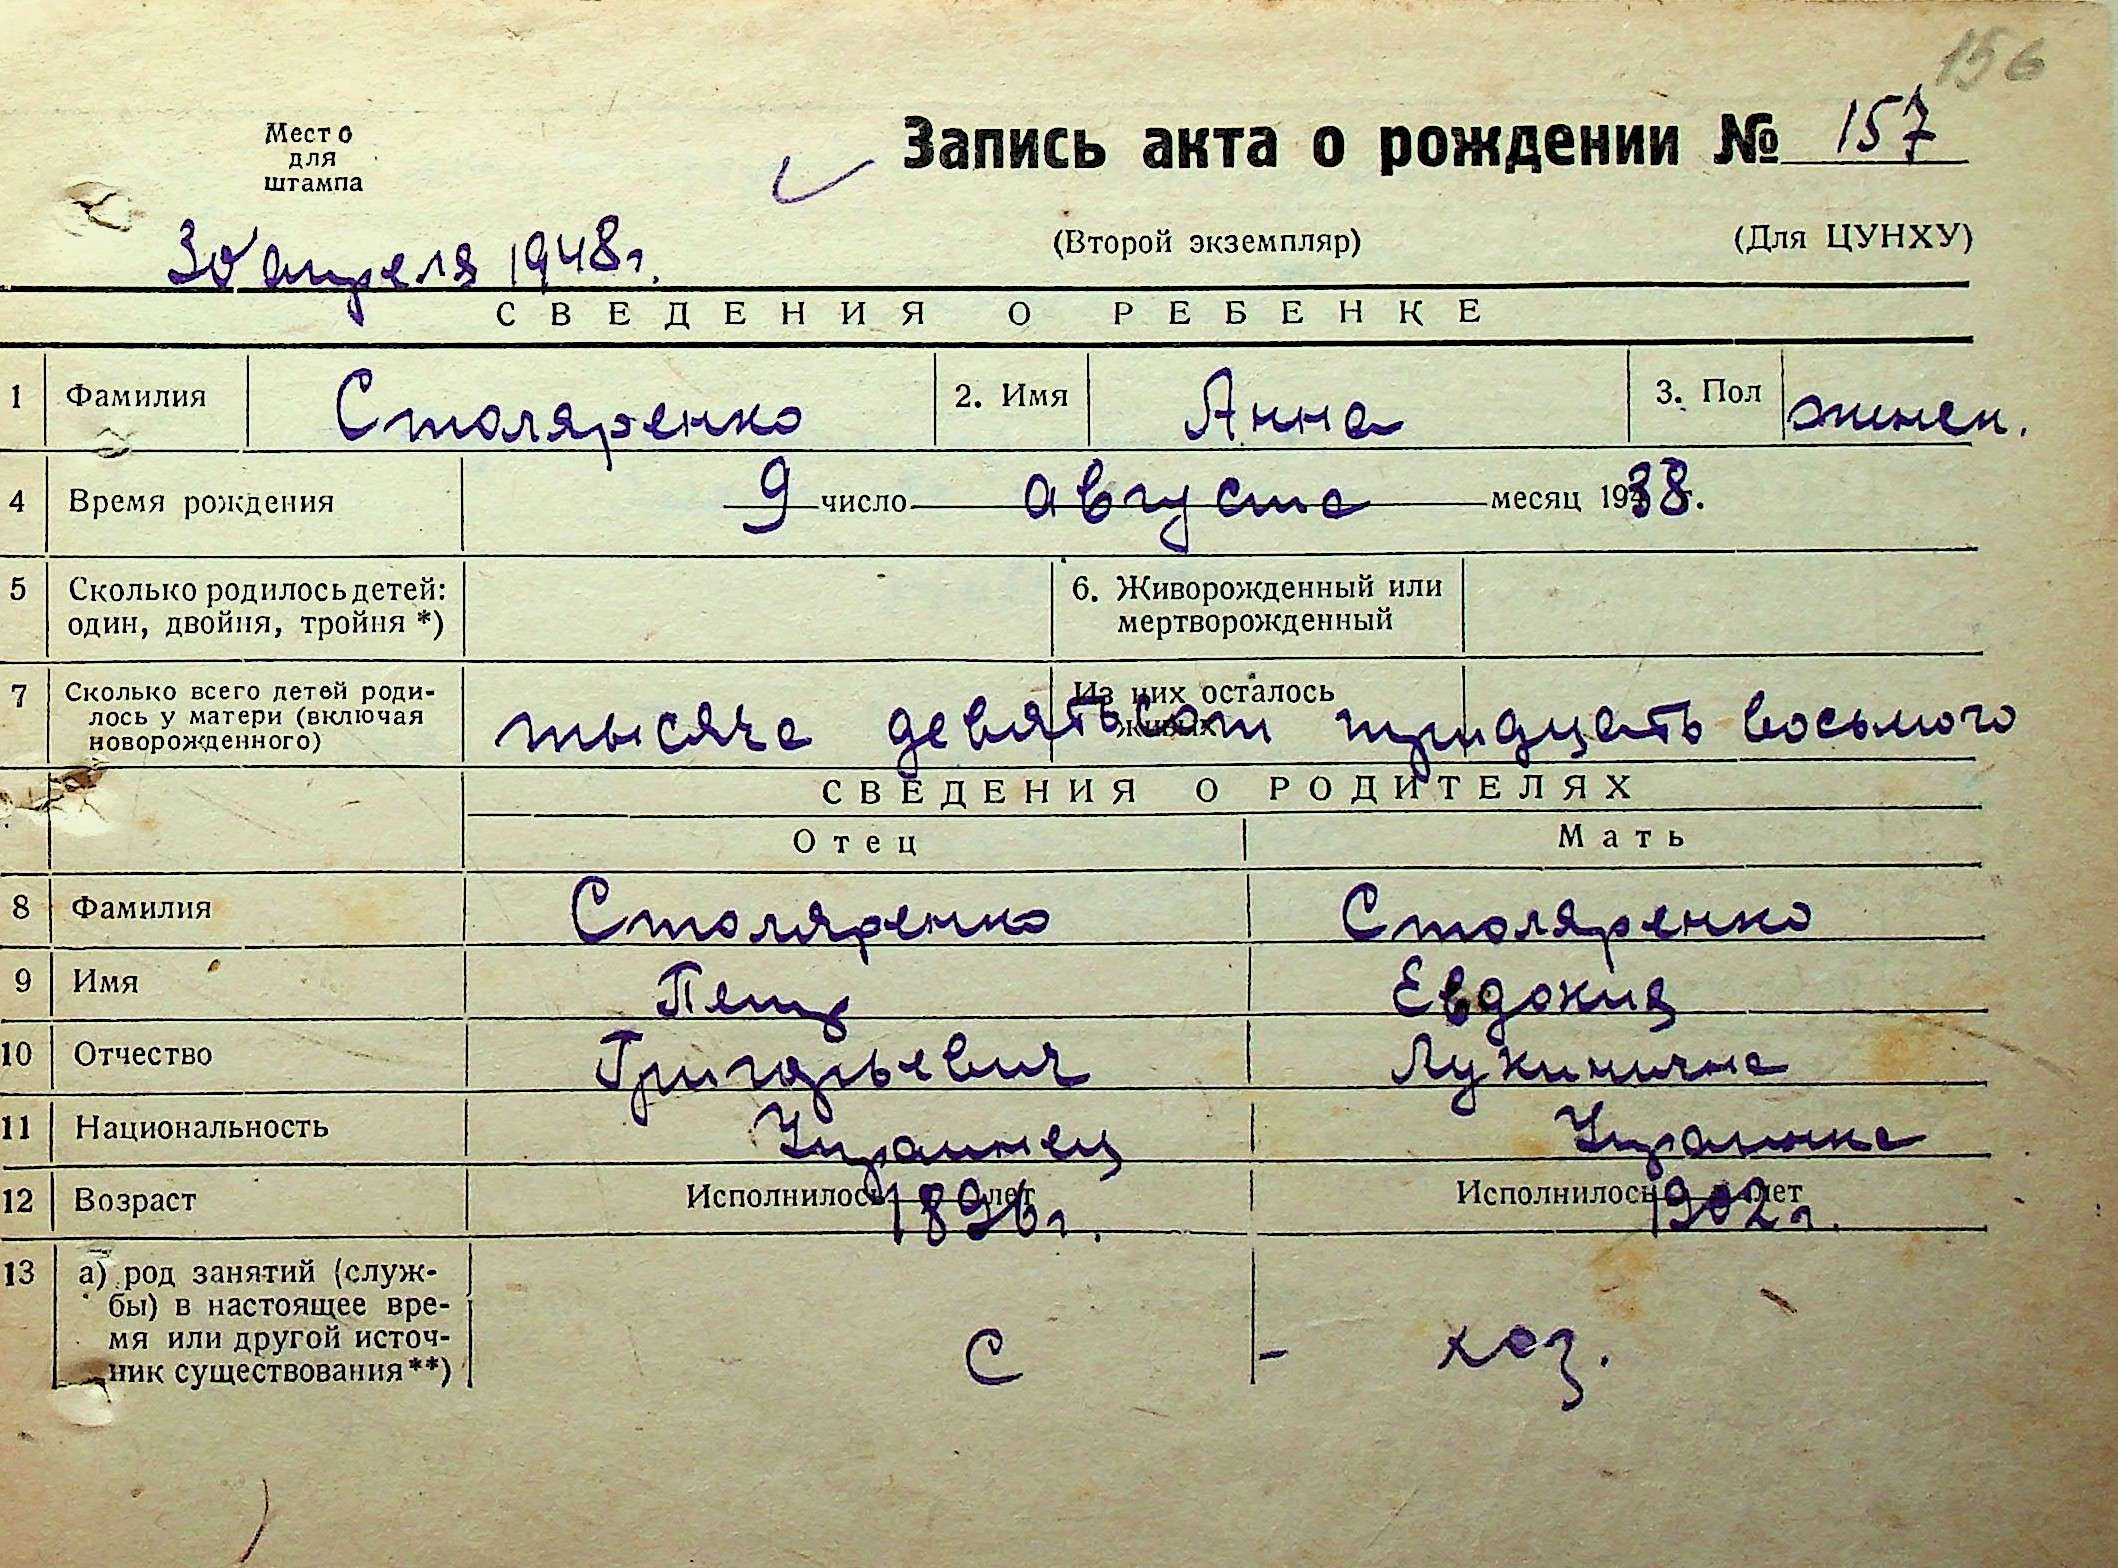 156
Место
для
штампа
Запись акта о рождении № 157
(Второй экземпляр) (Для ЦУНХУ)
30 апреля 1948 г.
СВЕДЕНИЯ О РЕБЕНКЕ
1 Фамилия Столяренко 2. Имя Анна 3. Пол женск.
4 Время рождения 9 число августа месяц 1938 г.
5 Сколько родилось детей: 6. Живорожденный или
один, двойня, тройня *) мертворожденный
7 Сколько всего детей роди- Из них осталось
лось у матери (включая живых
новорожденного)
тысяча девятьсот тридцать восьмого
СВЕДЕНИЯ О РОДИТЕЛЯХ
Отец Мать
8 Фамилия Столяренко Столяренко
9 Имя Петр Евдокия
10 Отчество Григорьевич Лукинична
11 Национальность Украинец Украинка
12 Возраст Исполнилось 1896 г. лет Исполнилось 1902 г. лет
13 а) род занятий (служ-
бы) в настоящее вре-
мя или другой источ-
ник существования **)
С - хоз.